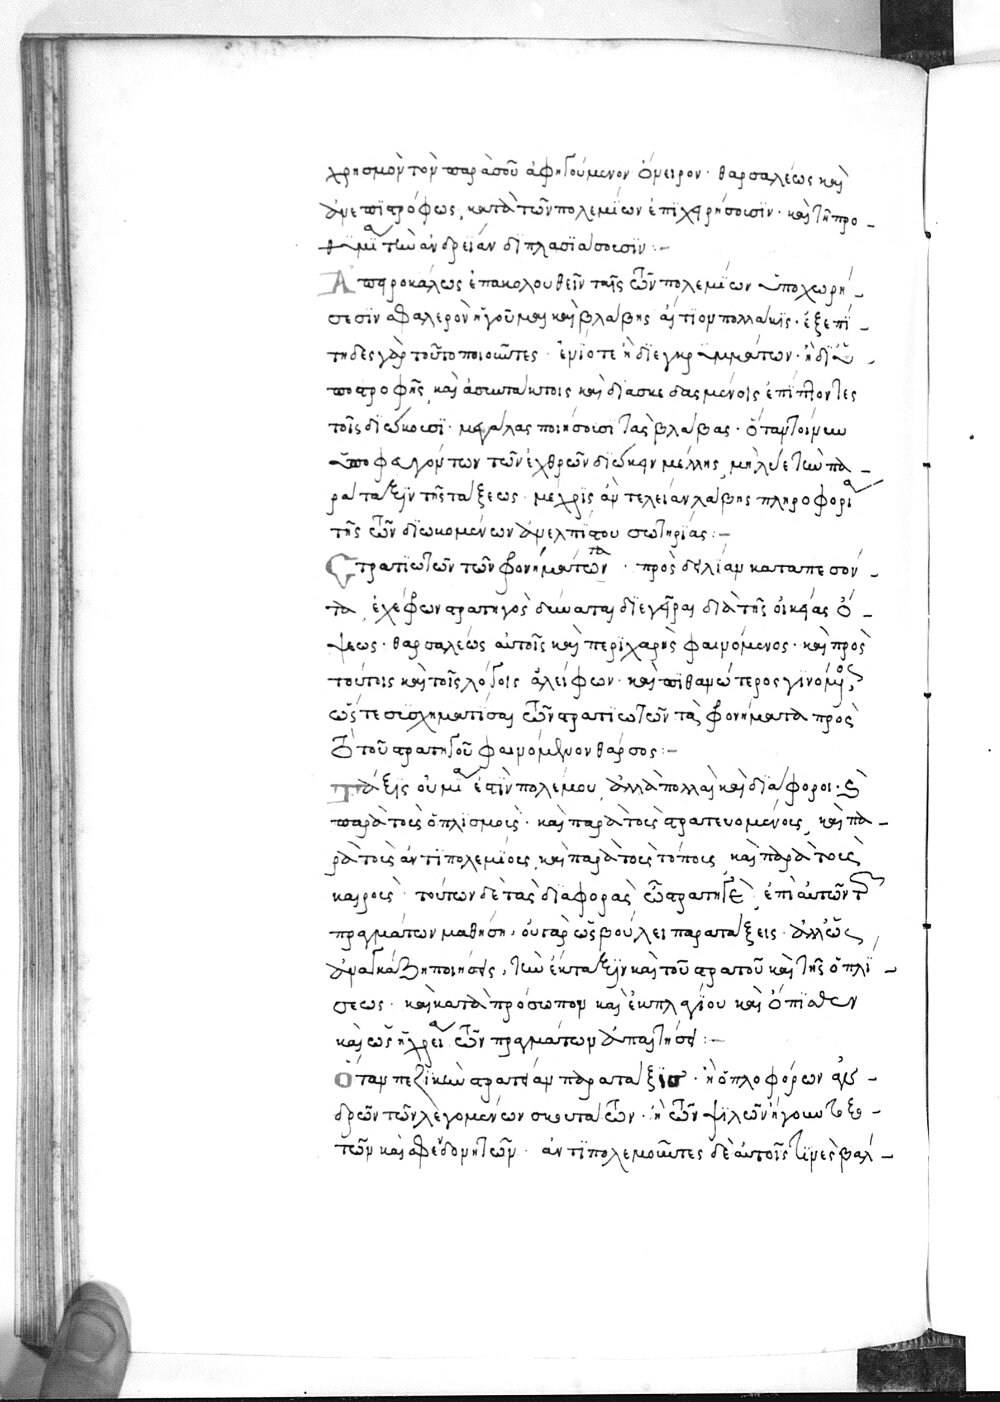 χρησμὸν τὸν παρὰ σοῦ ἀφηγούμενον ὄνειρον· θαρσαλέως καὶ
ἀνεπιστρόφως, κατὰ τῶν πολεμίων ἐπιχειρήσουσιν· καὶ τῇ προ-
θυμίᾳ τὴν ἀνδρείαν διπλασιάσουσιν:-
Ἀπαροκάλως ἐπακολουθεῖν ταῖς τῶν πολεμίων ὑποχωρή-
σεσιν σφαλερὸν ἡγοῦμαι καὶ βλάβης αἴτιον πολλάκις· ἐξεπί-
τηδες γὰρ τοῦτο ποιοῦντες· ἐνίοτε ἢ δι' ἐγκρυμμάτων· ἢ δι' ὑ-
ποστροφῆς, καὶ ἀσυντάκτοις καὶ διασκεδασμένοις ἐπιπίπτοντες
τοῖς διώκουσι· μεγάλας ποιήσουσι τὰς βλάβας· ὅταν τοίνυν
ὑποφευγόντων τῶν ἐχθρῶν διώκειν μέλλῃς, μὴ λύε τὴν πα-
ράταξιν τῆς τάξεως· μέχρις ἂν τελείαν λάβῃς πληροφορίαν
τῆς τῶν διωκομένων ἀνελπίστου σωτηρίας:-
Στρατιωτῶν τῶν φρονημάτων τὰ· πρὸς δειλίαν καταπεσόν-
τα, ἐχέφρων στρατηγὸς δύναται διεγεῖραι διὰ τῆς οἰκείας ὄ-
ψεως· θαρσαλέως αὐτοῖς καὶ περιχαρὴς φαινόμενος· καὶ πρὸς
τούτοις καὶ τοῖς λόγοις ἀλείφων· καὶ πιθανώτερος γινόμενος,
ὥστε συσχηματίσαι τῶν στρατιωτῶν τὰ φρονήματα πρὸς
τὸ τοῦ στρατηγοῦ φαινόμενον θάρσος:-
Τάξις οὐ μία ἐστὶν πολέμου, ἀλλὰ πολλαὶ καὶ διάφοροι· καὶ
παρὰ τοὺς ὁπλισμοὺς· καὶ παρὰ τοὺς στρατευομένους, καὶ πα-
ρὰ τοὺς ἀντιπολεμίους, καὶ παρὰ τοὺς τόπους, καὶ παρὰ τοὺς
καιρούς· τούτων δὲ τὰς διαφορὰς ὁ στρατηγὸς, ἐπὶ αὐτῶν τῶν
πραγμάτων μαθήσῃ, οὐ γὰρ ὡς βούλει παρατάξεις· ἀλλ' ὡς
ἀναγκάζῃ ποιήσεις, τὴν ἔκταξιν καὶ τοῦ στρατοῦ καὶ τῆς ὁπλί-
σεως· καὶ κατὰ πρόσωπον καὶ ἐκ πλαγίου καὶ ὄπισθεν
καὶ ὡς ἡ χρεία τῶν πραγμάτων ἀπαιτήσει:-
Ὅταν πεζικὴν στρατείαν παρατάξῃς· ἢ ὁπλοφόρων ἀν-
δρῶν τῶν λεγομένων σκουτάτων· ἢ τῶν ψιλῶν ἤγουν τοξο-
τῶν καὶ σφενδονητῶν· ἀντιπολεμοῦντες δὲ αὐτοῖς τινὲς βαλ-